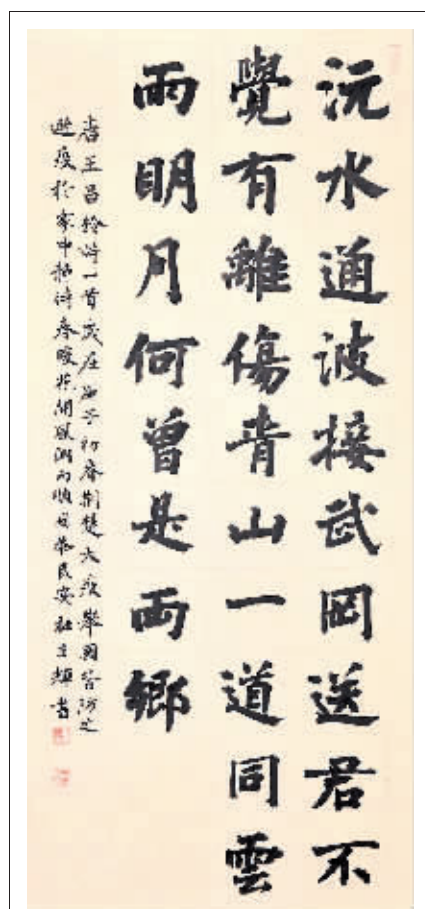 沅水通波接武岡送君不
覺有離傷青山一道同雲
雨明月何曾是兩鄉
唐王昌齡詩一首歲在庚子初春荊楚大疫舉國皆防之
避疫於家中 春暖花開風調雨順國泰民安 書